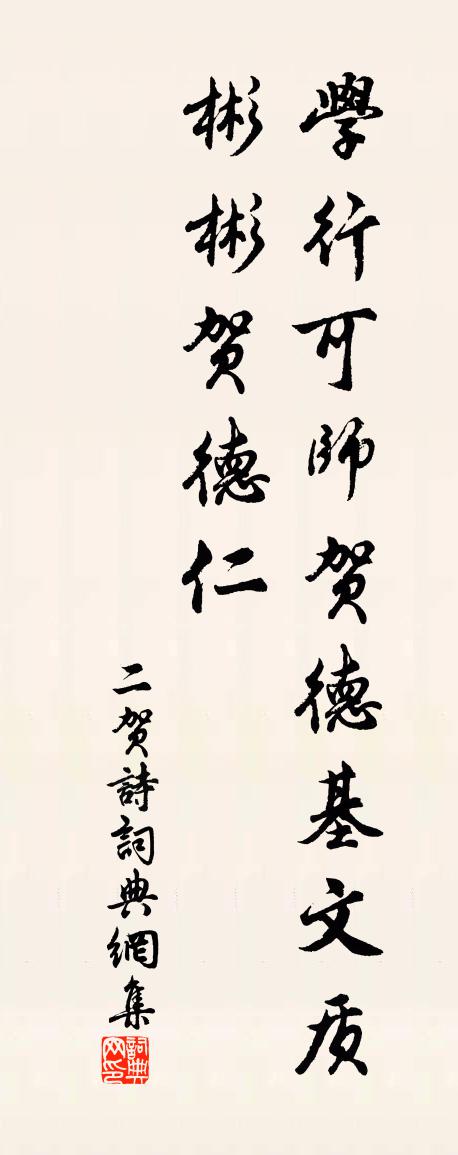 學行可師賀德基文质
彬彬賀德仁
二賀詩詞典網集
詞典網印